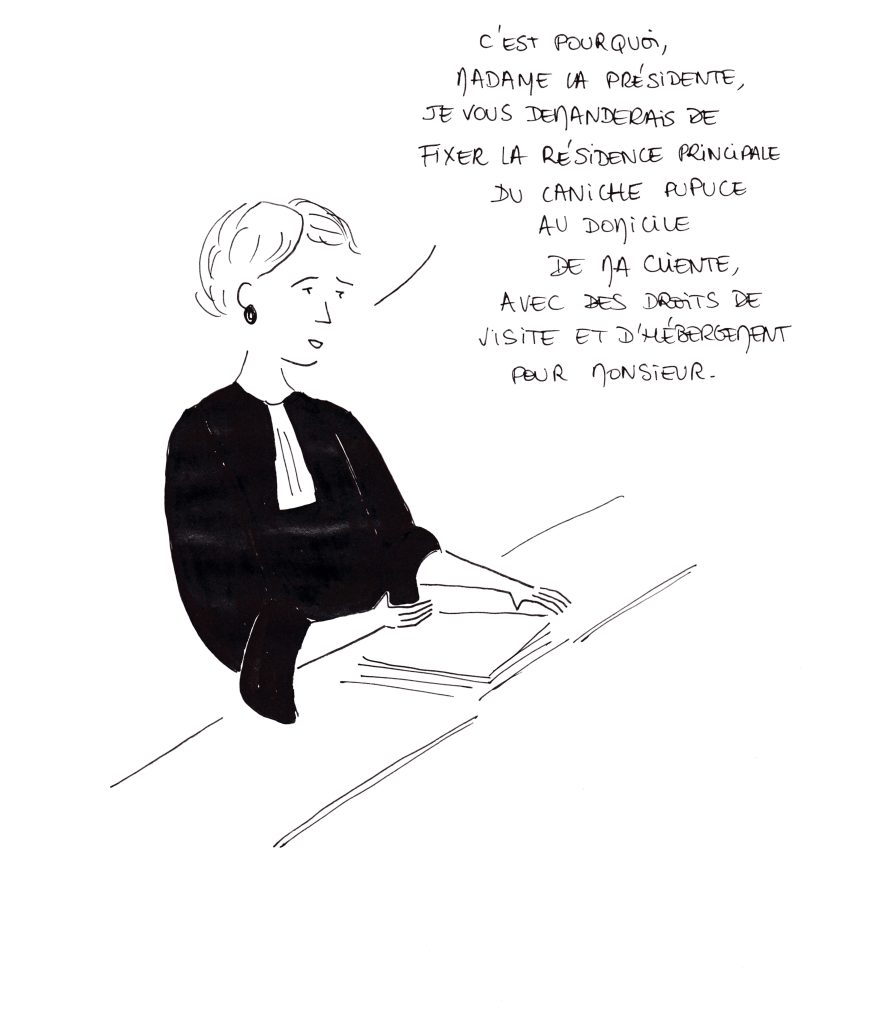 C'EST POURQUOI,
MADAME LA PRÉSIDENTE,
JE VOUS DEMANDERAIS DE
FIXER LA RÉSIDENCE PRINCIPALE
DU CANICHE PUPUCE
AU DOMICILE
DE MA CLIENTE,
AVEC DES DROITS DE
VISITE ET D'HÉBERGEMENT
POUR MONSIEUR.